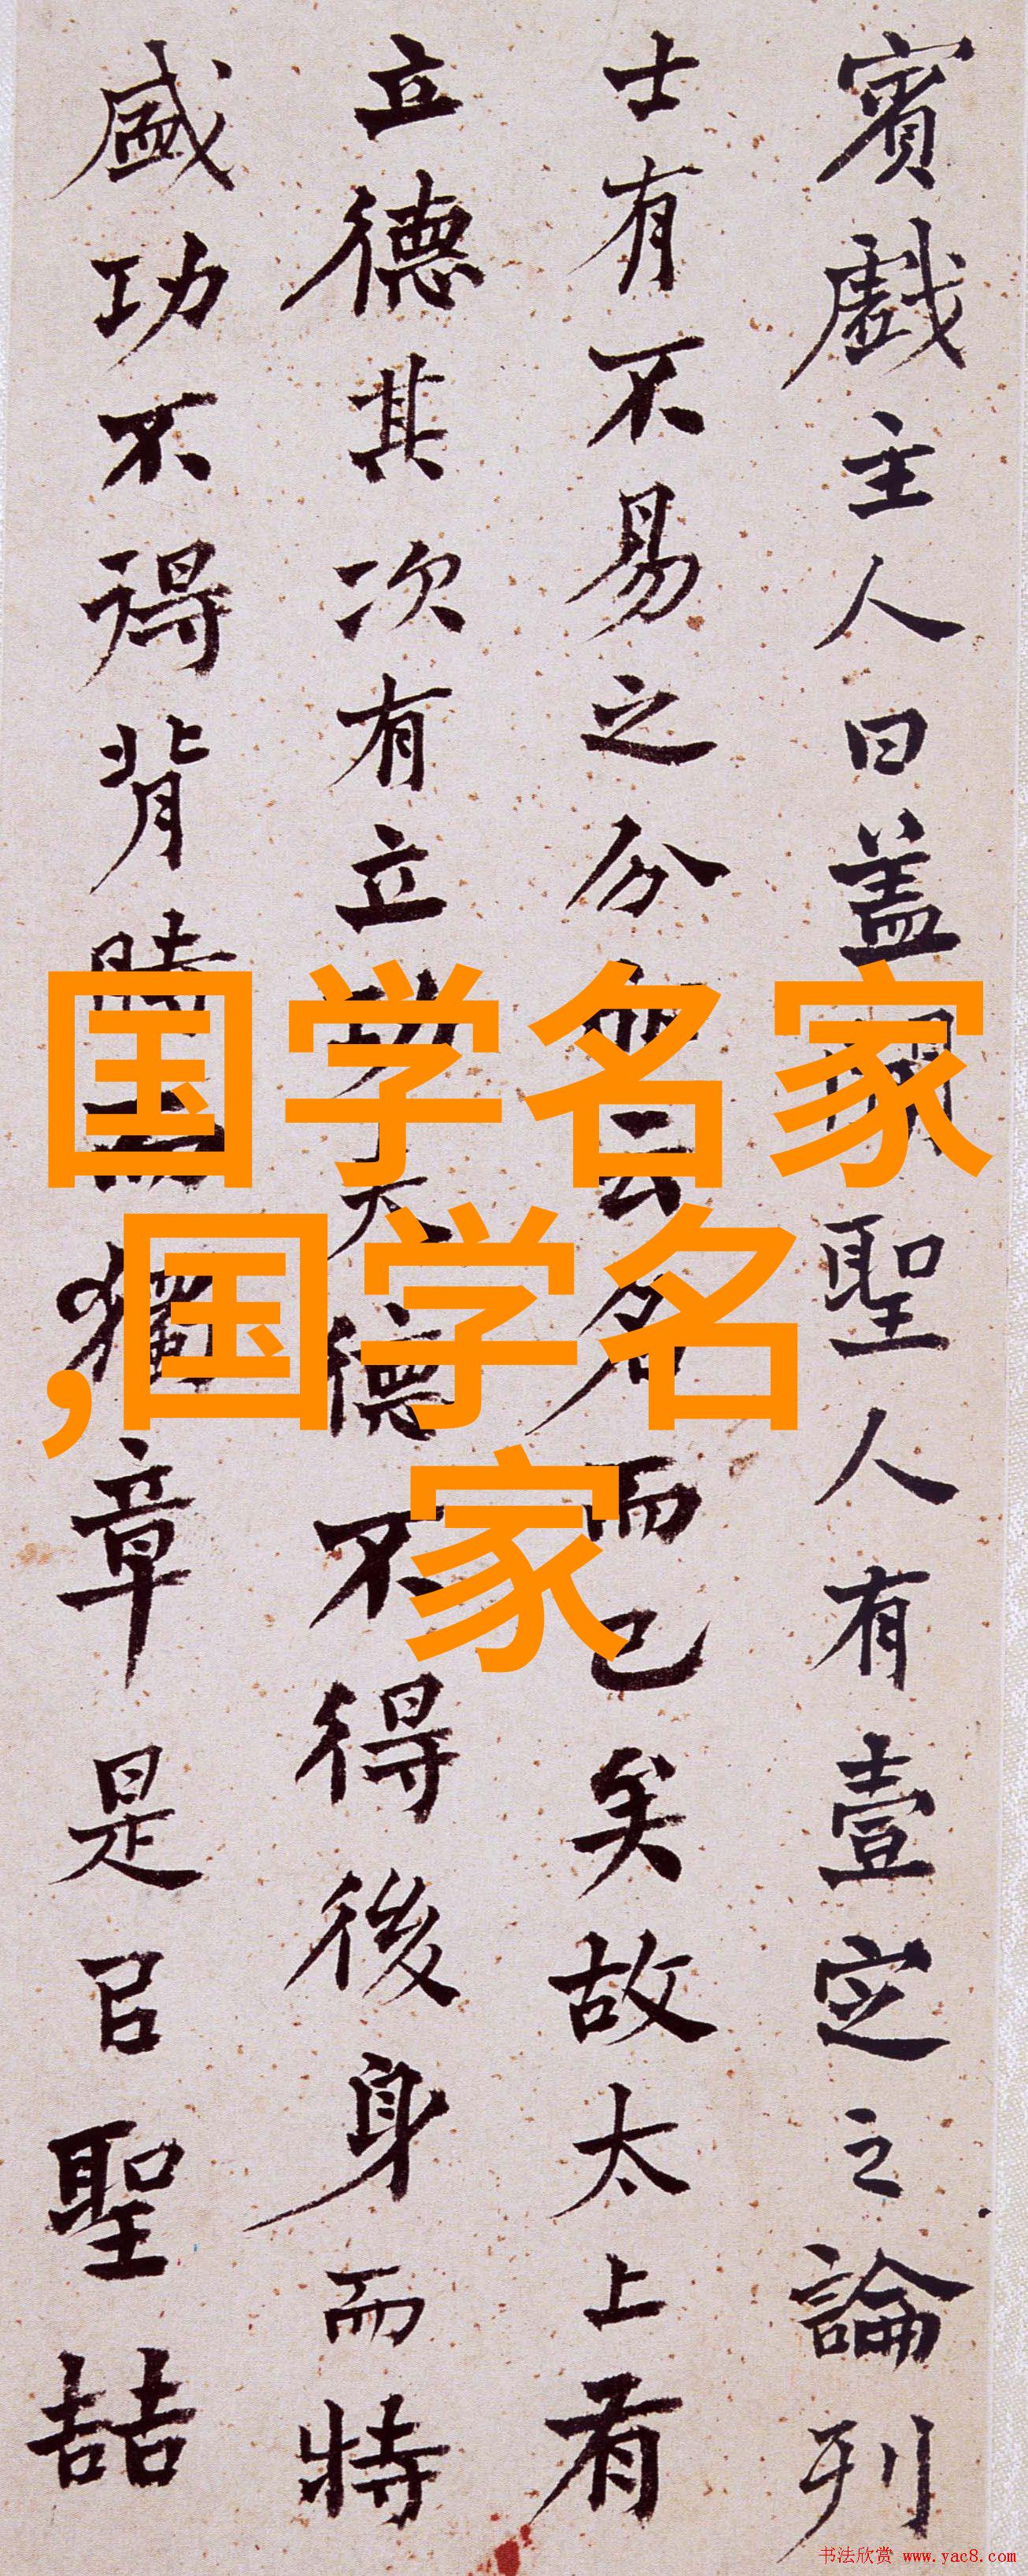 賓戲主人曰盖聞聖人有壹定之論列
士有不易之分云名而已矣故太上有
立德其次有立功夫德不得後身而特
盛功不得背時而獨章是㠯聖喆
国学名家
,国学名
家
书法欣赏 www.yac8.com